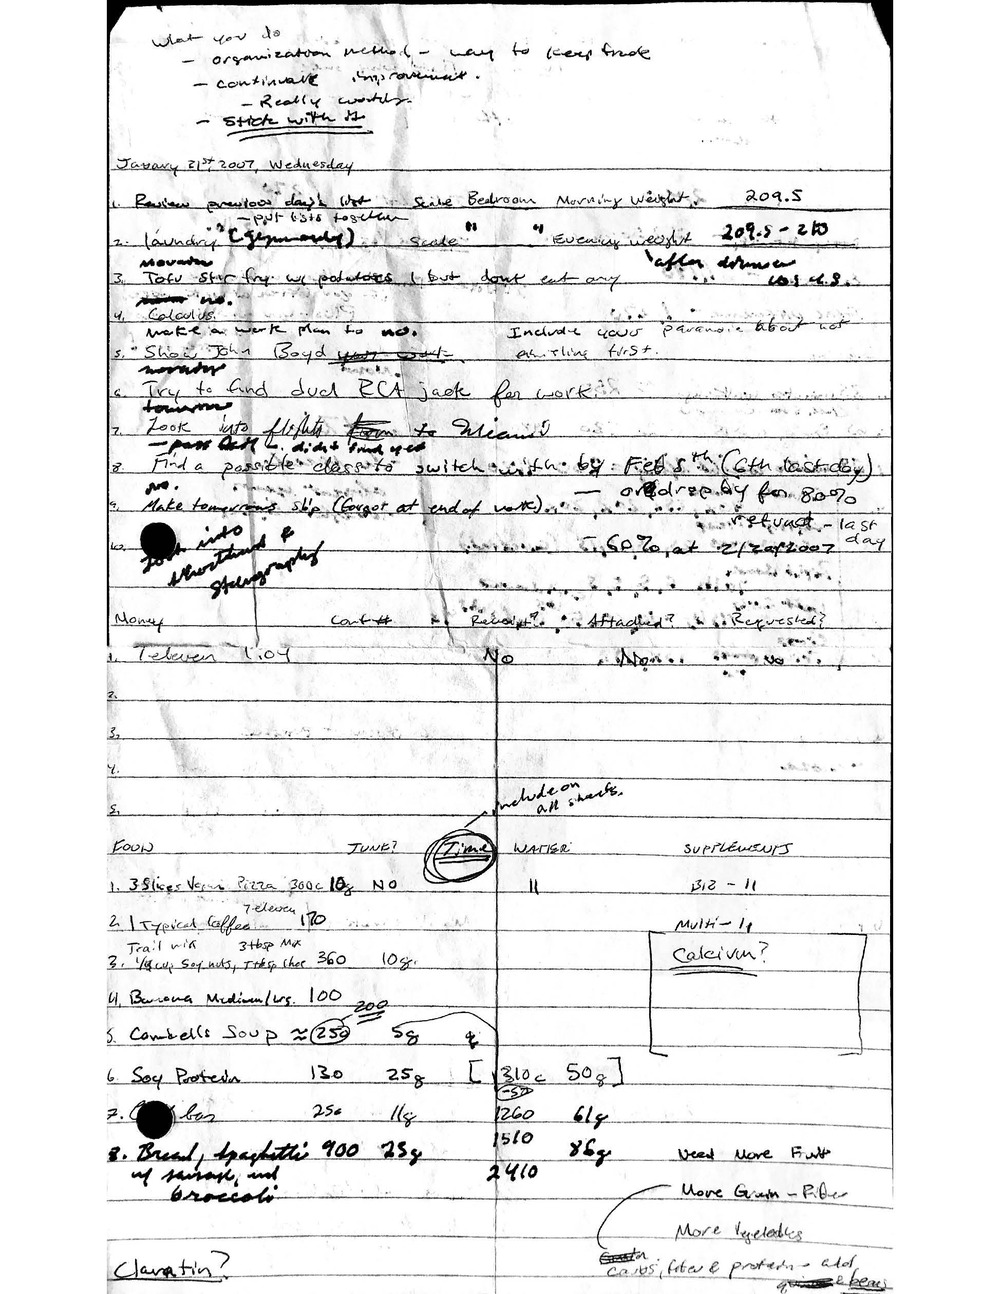 What you do
- organization method - way to keep track
- continual improvement.
- Really works.
- Stick with it
January 31st, 2007, Wednesday
1. Review previous day's list Scale Bedroom Morning Weight. 209.5
- put lists together
2. laundry Scale " " Evening weight 209.5 - 210
after dinner
3. Tofu stir fry w/ potatoes, but dont eat any
no.
4. Calculus.
Make a work plan to no. Include your paranoia about not
5. Show John Boyd first.
6. Try to find dual RCA jack for work.
tomorrow
7. Look into flights to Miami
- didnt find yet
8. Find a possible class to switch with by Feb 5th (6th last day)
no. - or drop by for 80%
9. Make tomorrows slip (forgot at end of work). refund - last
day
10. - 60%, at 2/20/2007
Look into
shorthand &
stenography
Money Conf # Receipt? Attached? Requested?
1. 7eleven 1.04 No No no
2.
3.
4.
5.
include on
all sheets.
FOOD JUNK? Time WATER SUPPLEMENTS
1. 3 Slices Vegan Pizza 300c 10g NO 11 B12 - 11
7eleven
2. 1 Typical Coffee 170 Multi - 11
Trail mix 3 tbsp Mix Calcium?
3. 1/4 cup Soy nuts, 1 tbsp choc 360 10g.
4. Banana Medium/Lrg. 100
200
5. Cambells Soup ≈ 250 5g
6. Soy Protein 130 25g [310c 50g]
-50
7. bar 250 11g 1260 61g
1510
8. Bread, spaghetti 900 25g 86g Need More Fruit
w/ sausage, and 2410
broccoli More Grain - Fiber
More Vegetables
Claratin? carbs, fiber & protein - add
& beans